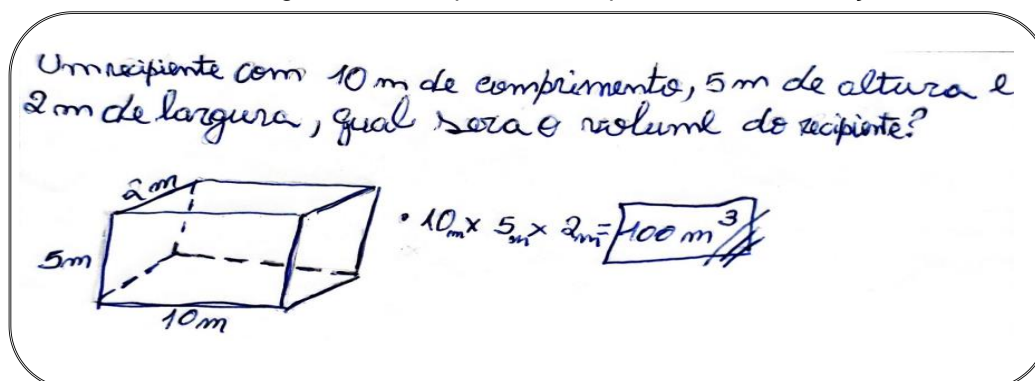 Um recipiente com 10 m de comprimento, 5 m de altura e
2 m de largura, qual sera o volume do recipiente?
2 m
• 10m x 5m x 2m = 100 m³
5m
10 m